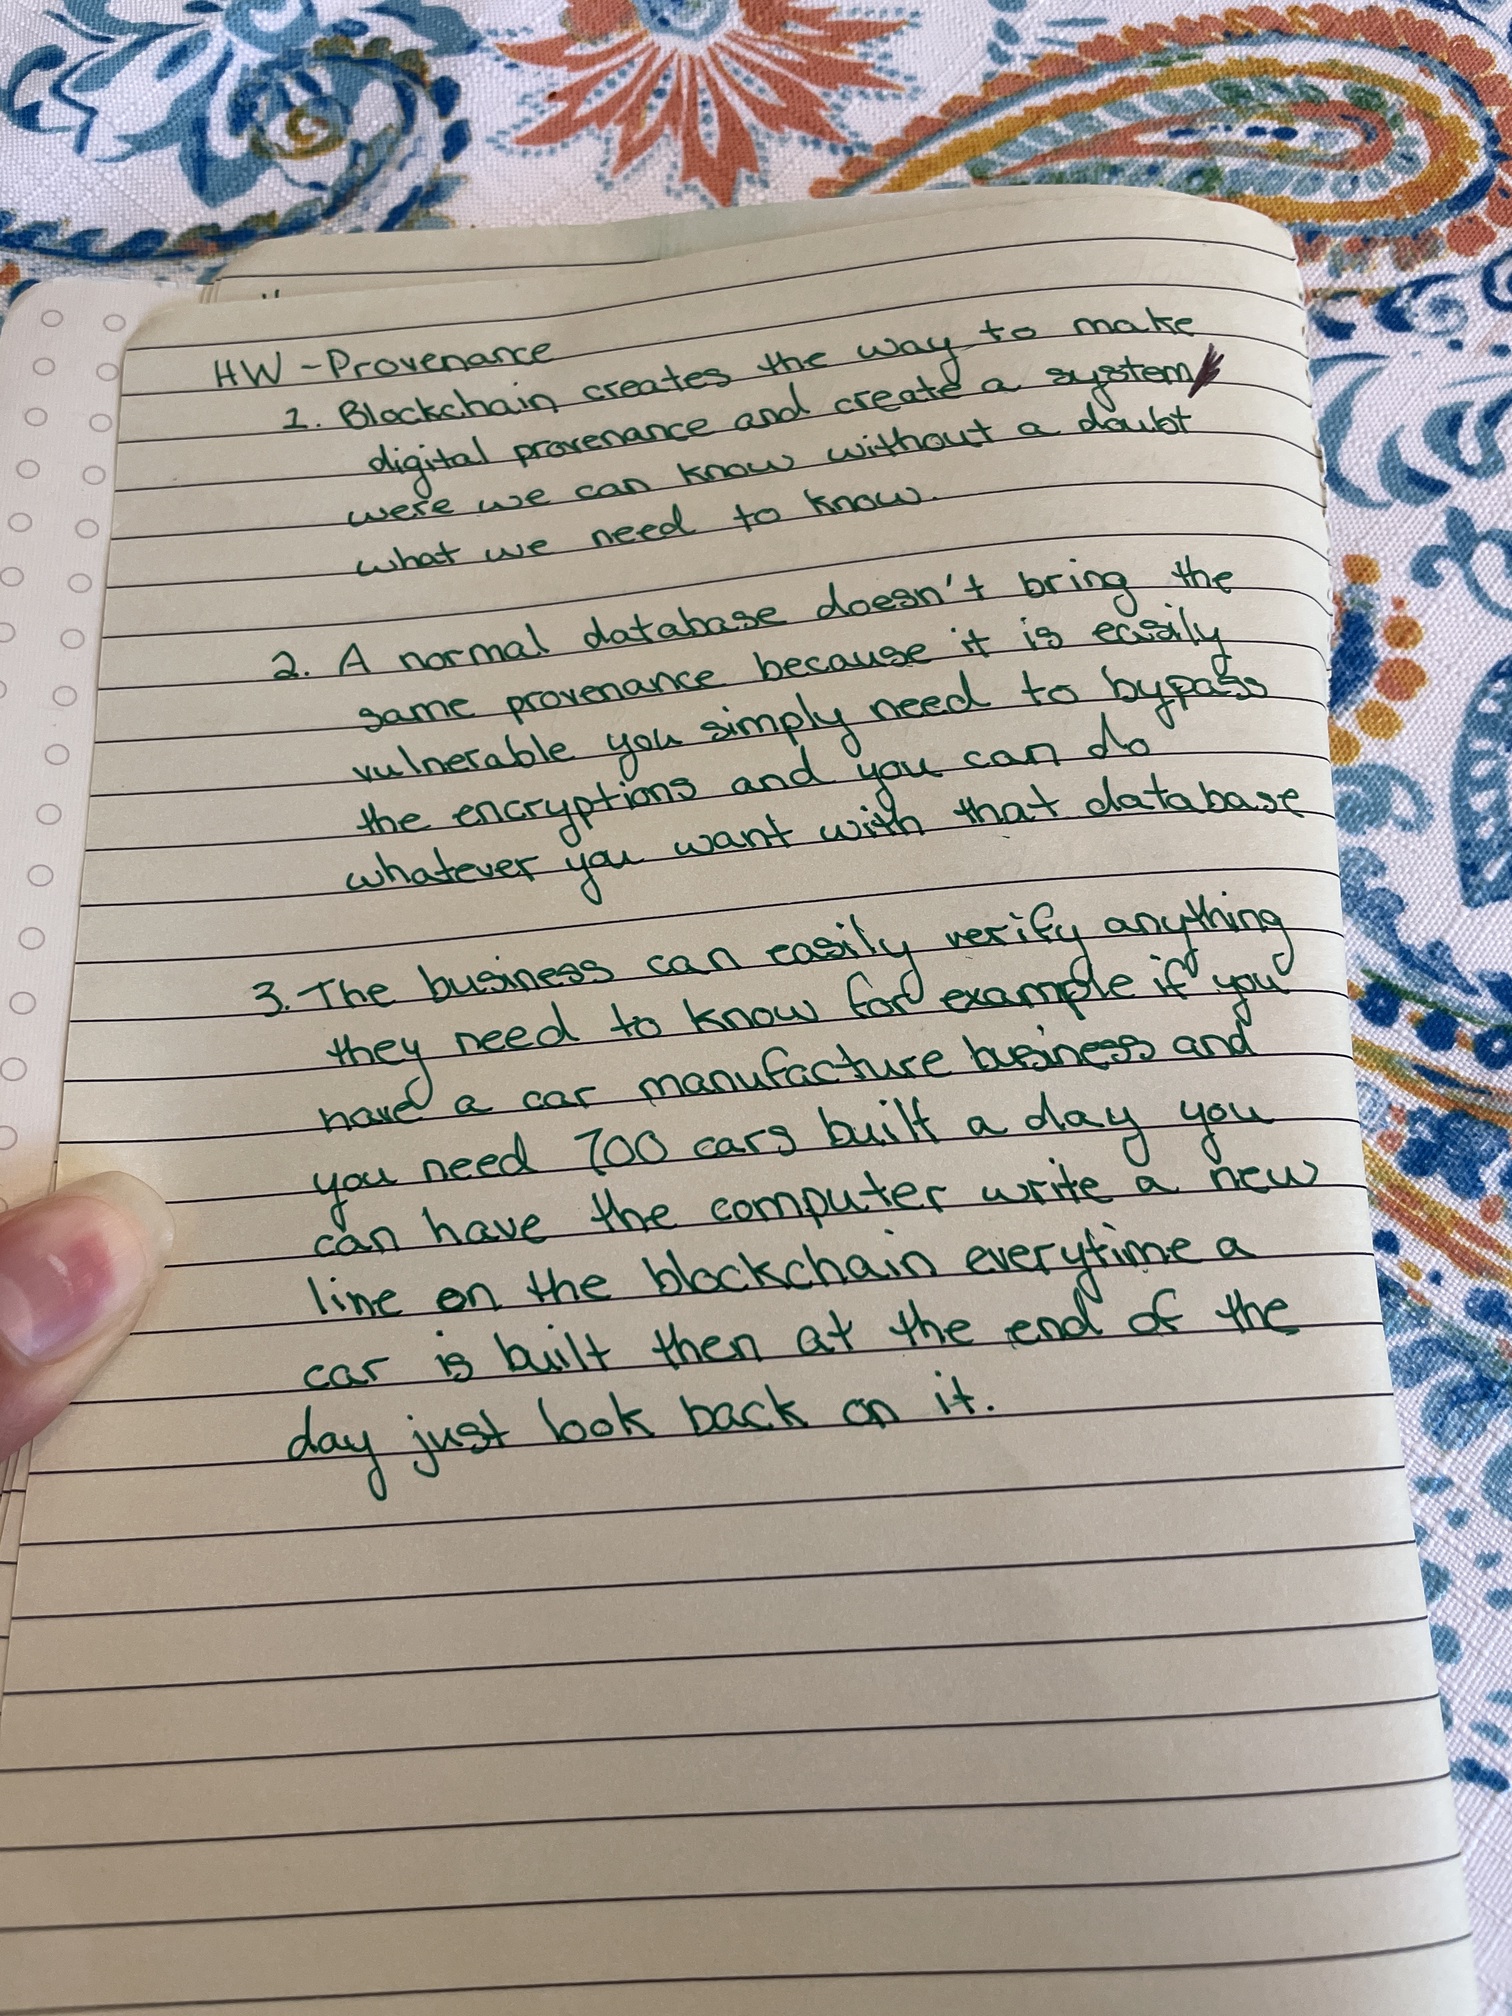 HW - Provenance
1. Blockchain creates the way to make
digital provenance and create a system
were we can know without a doubt
what we need to know.
2. A normal database doesn't bring the
same provenance because it is easily
vulnerable you simply need to bypass
the encryptions and you can do
whatever you want with that database
3. The business can easily verify anything
they need to know for example if you
have a car manufacture business and
you need 700 cars built a day you
can have the computer write a new
line on the blockchain everytime a
car is built then at the end of the
day just look back on it.